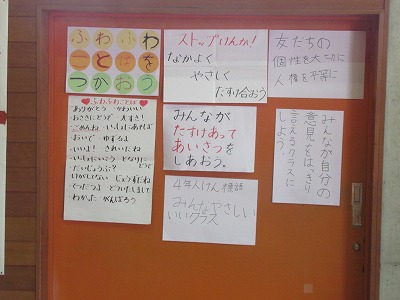 ふわふわ
ことばを
つかおう
ストップけんか!
なかよく
やさしく
たすけ合おう
友だちの
個性を大切に
人権を平等に
ふわふわことば
ありがとう かわいい
おさきにどうぞ 大すき!
ごめんね いっしょにあそぼ
おいで ゆずるよ
いいよ! きれいだね
いっしょにいこう となりに
どうぞ
だいじょうぶ?
けがしてない じょうずだね
てつだうよ どういたしまして
わかった がんばろう
みんなが
たすけあって
あいさつを
しあおう。
みんなが自分の
意見をはっきり
言えるクラスに
しよう。
4年人けん標語
みんなやさしい
いいクラス